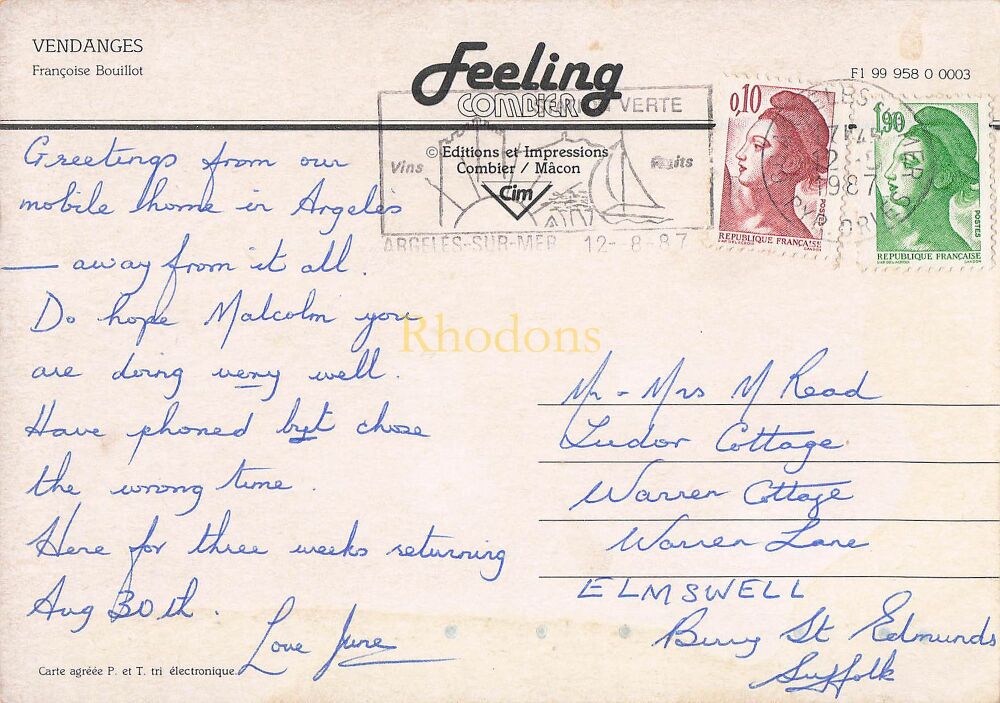 VENDANGES
Françoise Bouillot
Feeling
COMBIER
F1 99 958 0 0003
VERTE
Vins
Fruits
© Editions et Impressions
Combier / Mâcon
Cim
ARGELÈS-SUR-MER 12-8-87
0,10
POSTES
REPUBLIQUE FRANÇAISE
1,90
POSTES
REPUBLIQUE FRANÇAISE
1987
Greetings from our
mobile home in Argelès
— away from it all.
Do hope Malcolm you
are doing very well.
Have phoned but chose
the wrong time.
Here for three weeks returning
Aug 30th.
Love June
Mr - Mrs M Read
Tudor Cottage
Warren Cottage
Warren Lane
ELMSWELL
Burry St Edmunds
Suffolk
Rhodons
Carte agréée P. et T. tri électronique.